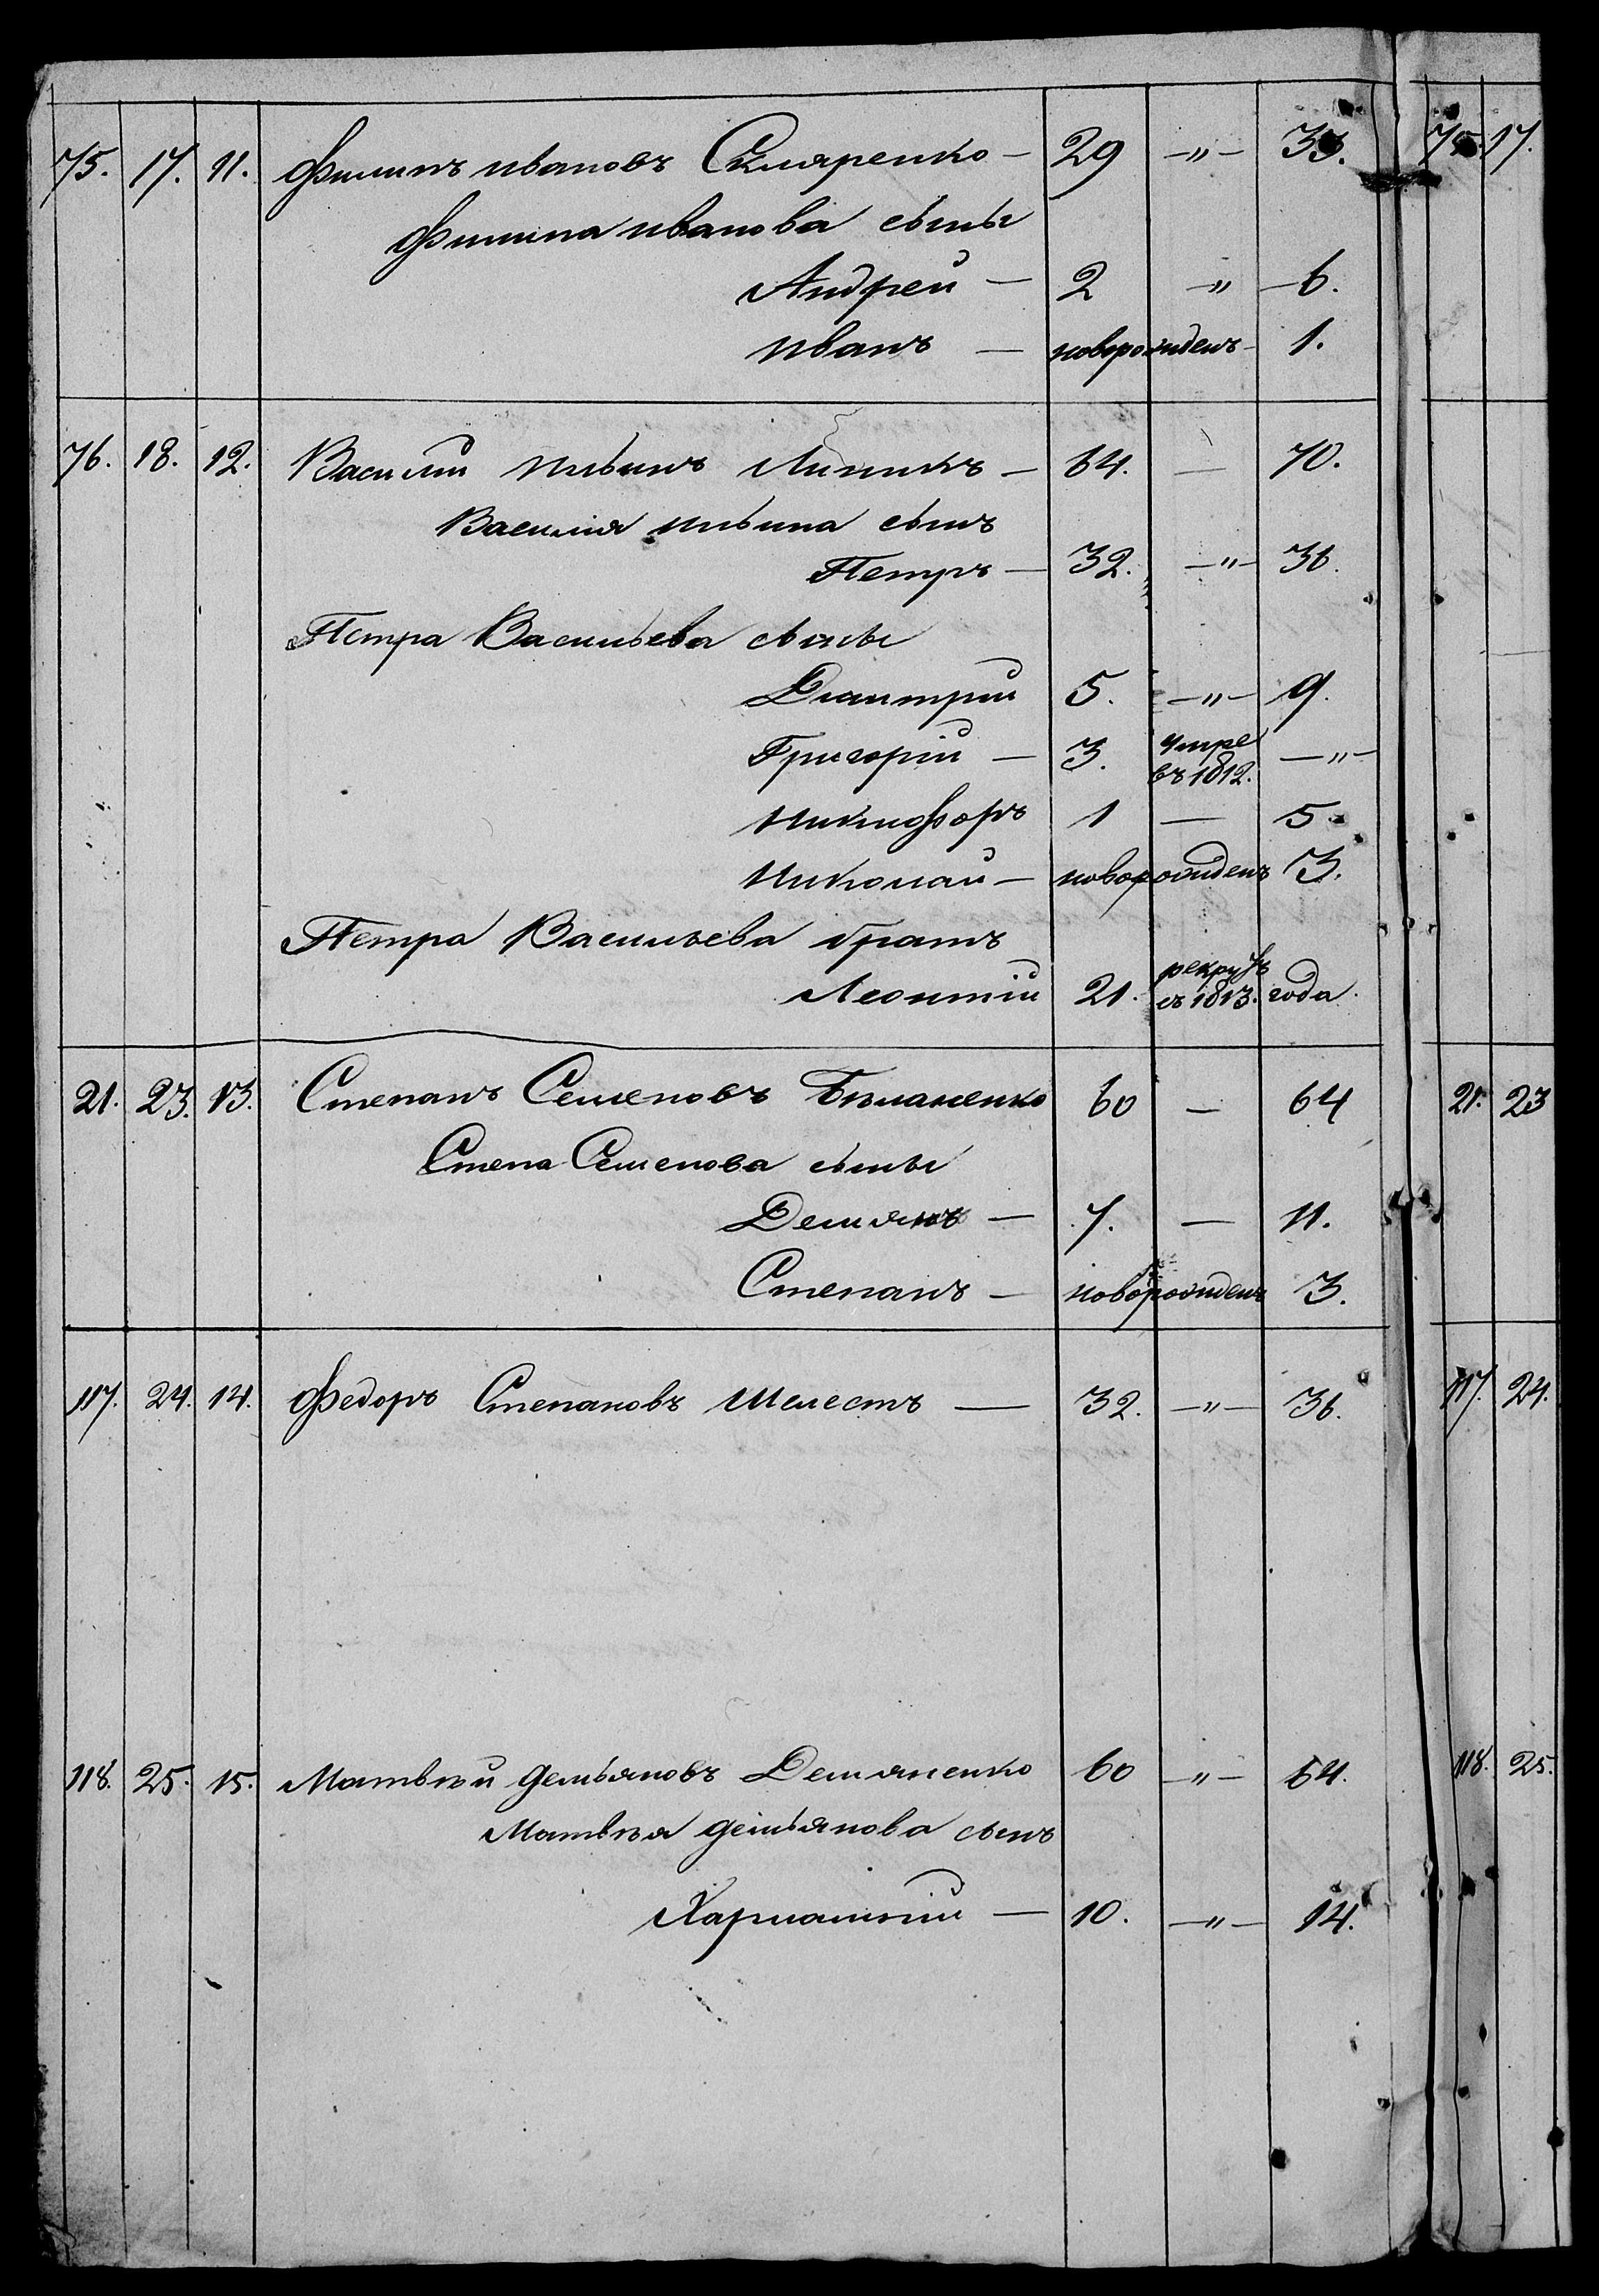 75. 17. 11. Филипъ ивановъ Скляренко — 29 —"— 33. 75. 17.
Филипа иванова сыны
Андрей — 2 " — 6.
иванъ — новорожденъ — 1.
76. 18. 12. Василий ильинъ Линникъ — 64. — 70.
Василия ильина сынъ
Петръ — 32. —"— 36.
Петра Васильева сыны
Дмитрий 5. —"— 9.
Григорій — 3. умре въ 1812. —"—
Никифоръ 1 — 5.
Николай — новорожденъ 3.
Петра Васильева братъ
Леонтій 21. рекрутъ съ 1813. года.
21. 23. 13. Степанъ Семеновъ Беланенко 60 — 64 21. 23
Степа Семенова сыны
Демянъ — 7. — 11.
Степанъ — новорожденъ 3.
117. 24. 14. Федоръ Степановъ Шелестъ — 32. —"— 36. 117. 24.
118. 25. 15. Матвѣй демьяновъ Демяненко 60 —"— 64. 118. 25.
Матвѣя демьянова сынъ
Харлампій — 10. —"— 14.